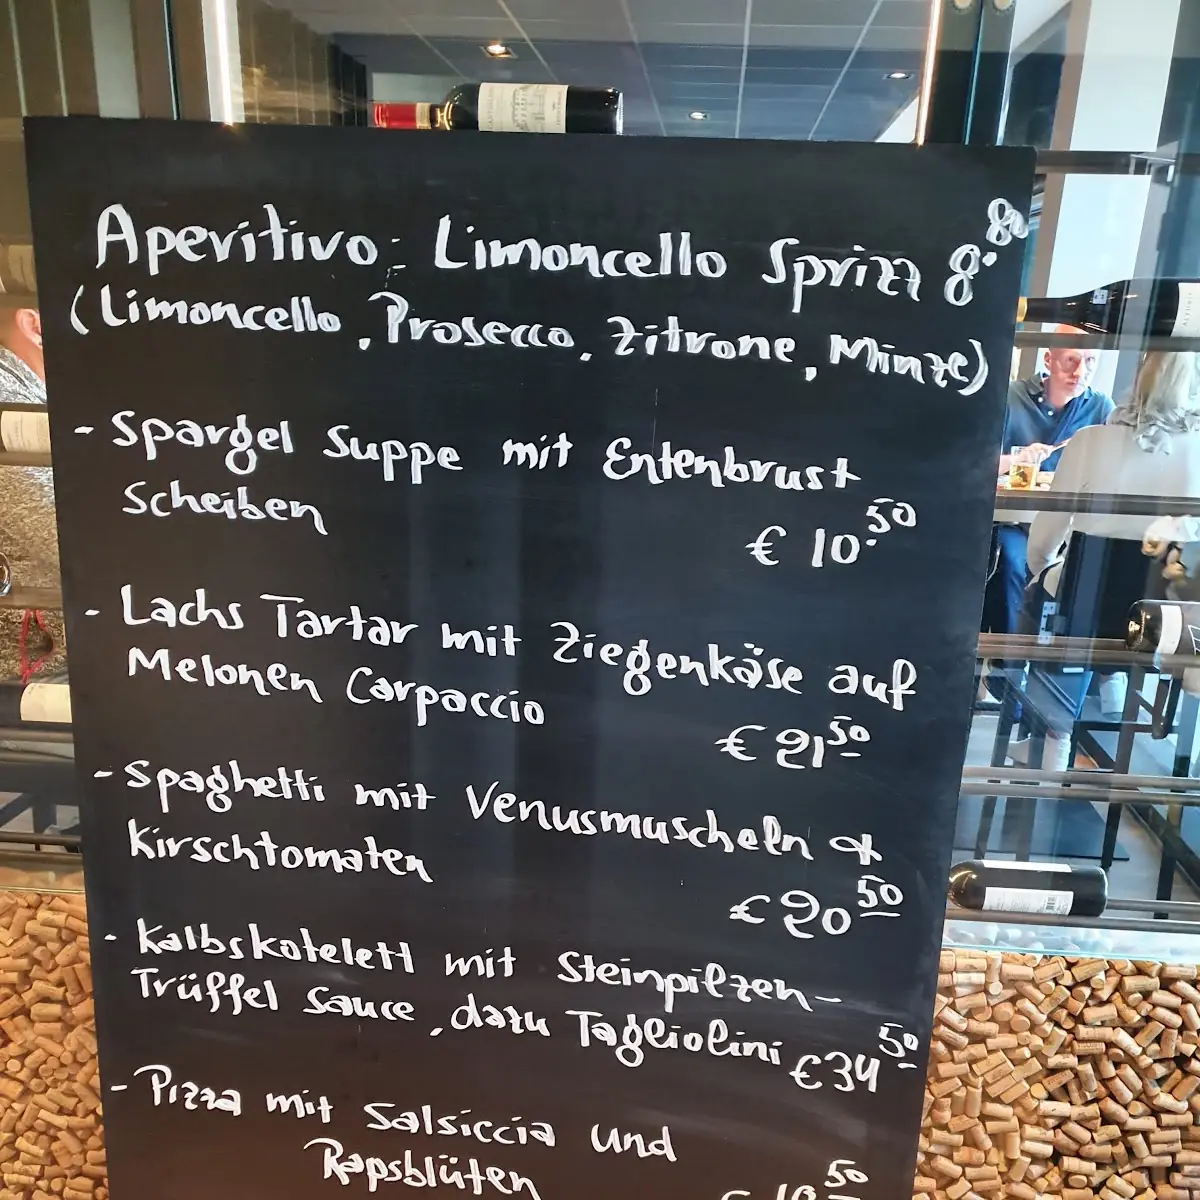 Aperitivo: Limoncello Sprizz 8.80
(Limoncello, Prosecco, Zitrone, Minze)
- Spargel Suppe mit Entenbrust
Scheiben
€ 10.50
- Lachs Tartar mit Ziegenkäse auf
Melonen Carpaccio
€ 21 50
- Spaghetti mit Venusmuscheln &
Kirschtomaten
€ 20 50
- Kalbskotelett mit Steinpilzen-
Trüffel Sauce, dazu Tagliolini € 34 50
- Pizza mit Salsiccia und
Rapsblüten
50